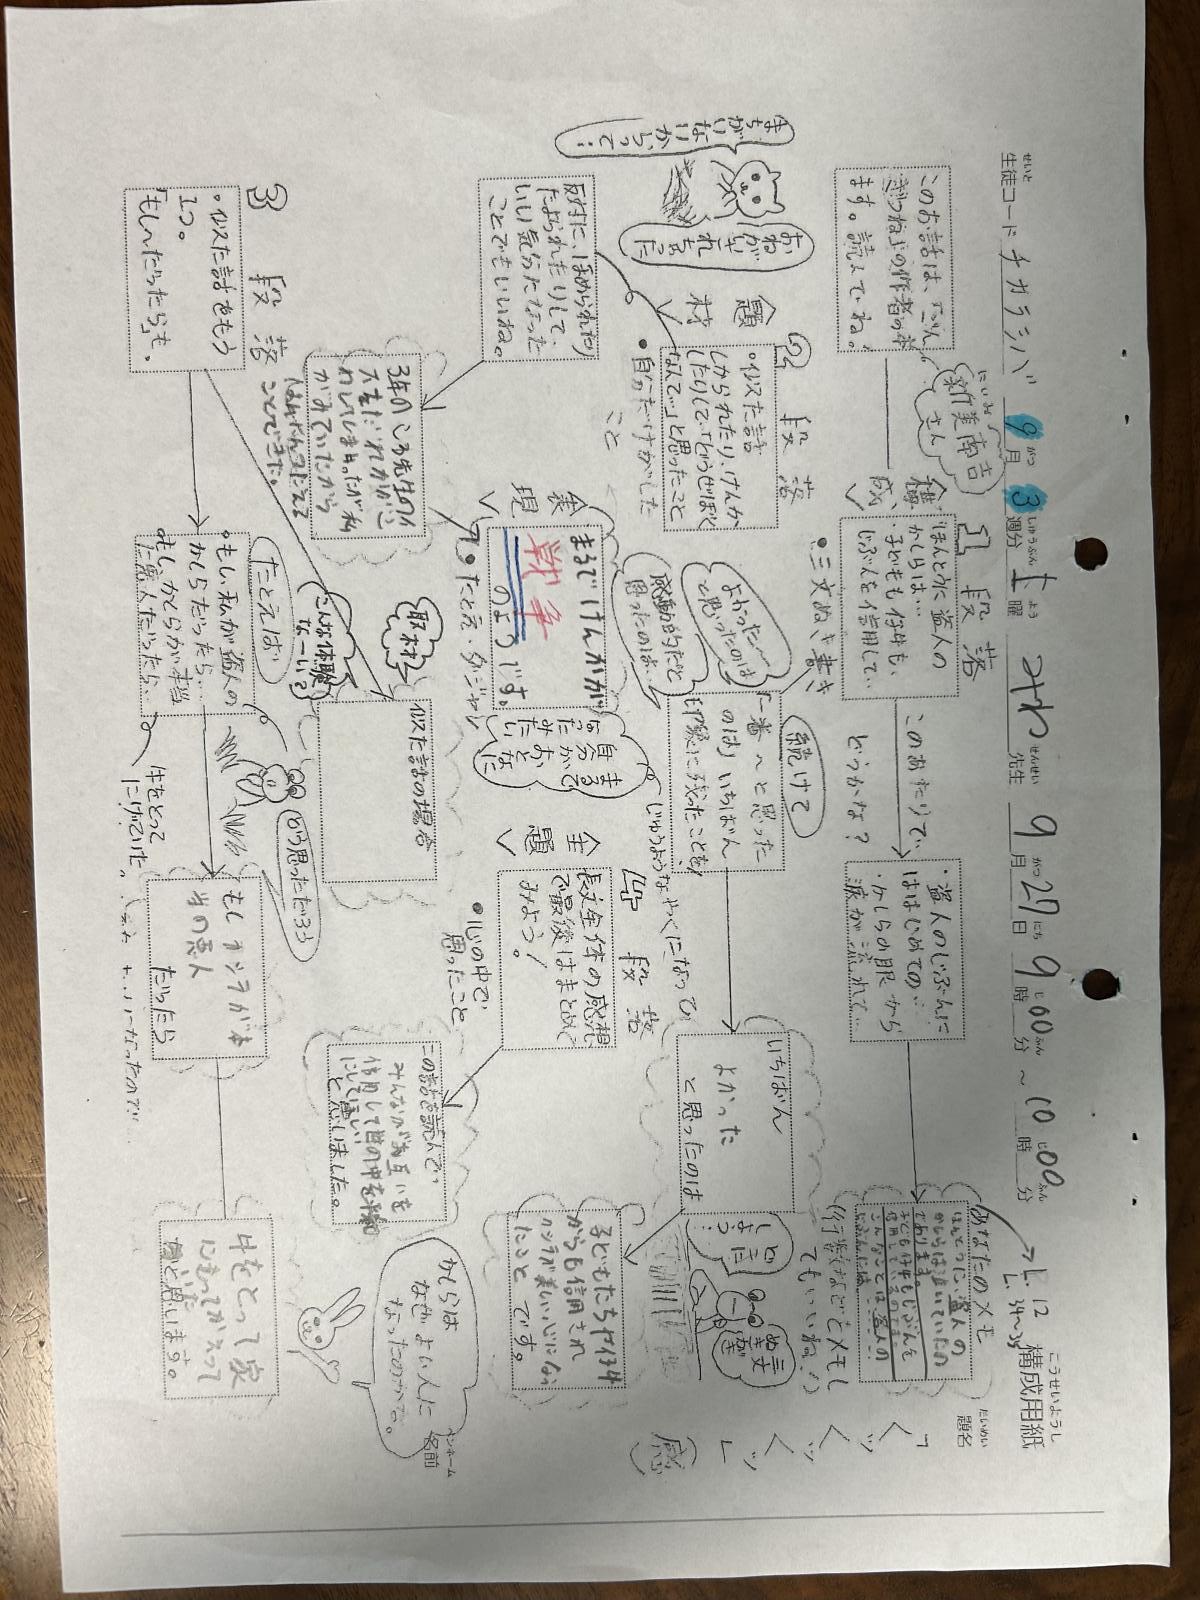 構成用紙
こうせいようし
生徒コード チカラシバ 9月 3週分 土曜 みね 先生 9月27日 9時00分～10時00分
題名
名前
ペンネーム
このお話は、「ごん
ぎつね」の作者の本
ます。読んでいね。
新美南吉
にいみ
さん
構成
1段落
・ほんとうに盗人の
かしらは…
・子どもも仔牛も、
じぶんを信用して…
・三文ぬき書き
このあたりで、
どうかな？
・盗人のじぶんに
はじめての…
・かしらの眼から
涙が流れて…
あなたのメモ
L.12
L.34～35
ほんとうに盗人の
かしらは泣いていたの
であります。
子どもも仔牛もじぶんを
(行数などをメモし
てもいいね！)
続けて
「一番～と思った
のは」いちばん
印象に残ったことを
よかった～
と思ったのは
感動的だと
思ったのは…
いちばん
よかった
と思ったのは
子どもたちや仔牛
からも信用され
カシラが美しい心になっ
たこと です。
どこに
しよう？
三文
ぬき
がき
題材
2段落
・似た話
しかられたり、けんか
したりして、「どうせぼく
なんて」と思ったこと
・自分だけがした
こと
まちが
いない
からって…
おねが
いされ
ちゃった
反対に、ほめられたり
たよられたりして、
いい気分になった
ことでもいいね。
3年のころ先生の
こわれてしまったが私
がみていたから
ことができた。
表現
まるでけんかが
戦争
のようです。
・たとえ・ダジャレ
まるで
自分が
おとな
になった
みたい
じゅうようなやくになって
取材
こんな体験
なーい？
似た話の場合
主題
4段落
長文全体の感想
で最後はまとめて
みよう！
・心の中で
思ったこと
この話を読んで、
みんながお互いを
信用して世の中を平和
にしてほしい
と思いました。
3段落
・似た話をもう
1つ。
「もし～だったら」も。
たとえば
・もし私が盗人の
かしらだったら…
・もし、かしらが本当
に悪人だったら…
どう思っただろう
牛をとって
にげていた。
もしカシラが本
当の悪人
だったら
牛をとって家
にもってかえって
いたと思います。
かしらは
なぜよい人に
なったのかな。